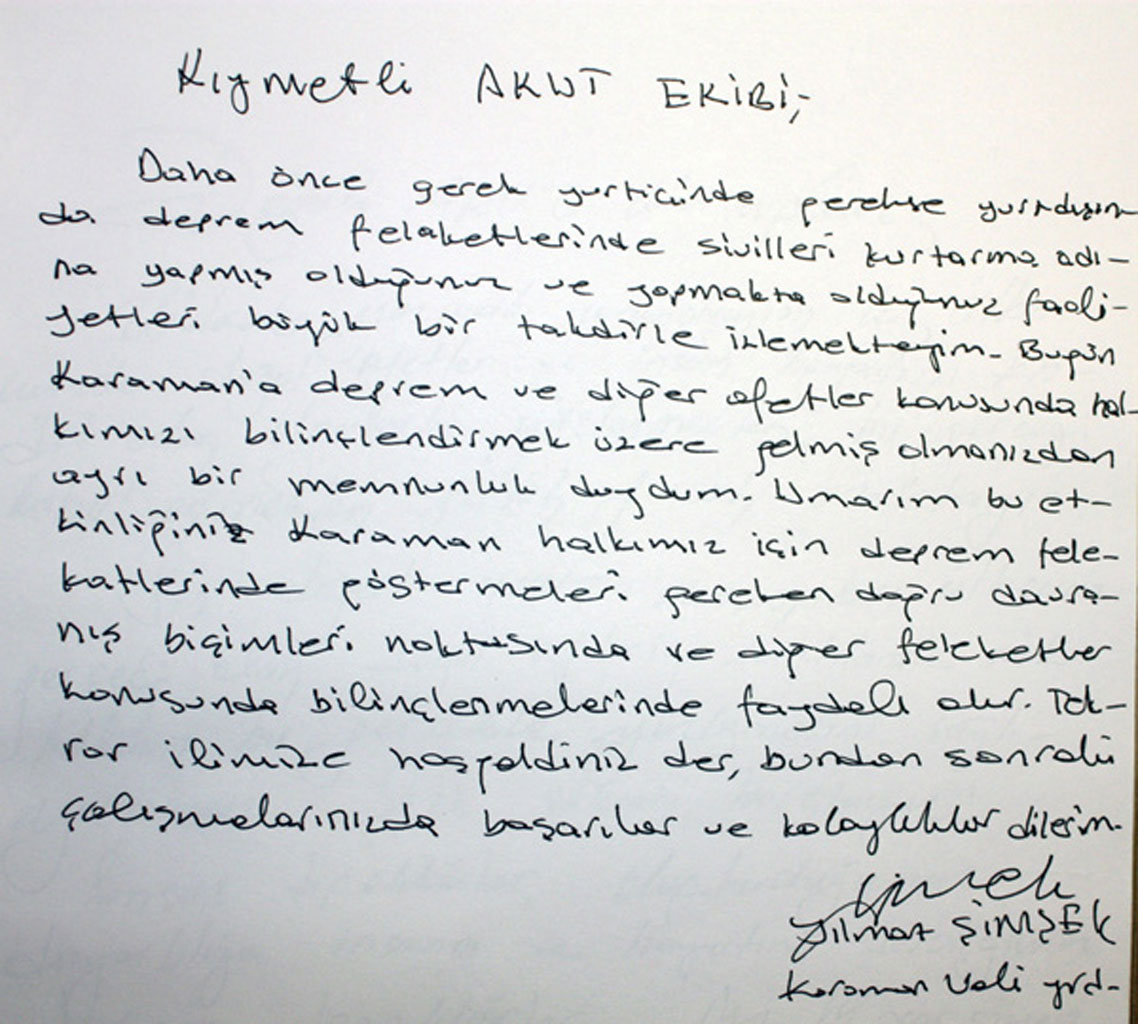 Kıymetli AKUT EKİBİ;
Daha önce gerek yurtiçinde gerekse yurtdışın-
da deprem felaketlerinde sivilleri kurtarma adı-
na yapmış olduğunuz ve yapmakta olduğunuz faali-
yetleri büyük bir takdirle izlemekteyim. Bugün
Karaman'a deprem ve diğer afetler konusunda hal-
kımızı bilinçlendirmek üzere gelmiş olmanızdan
ayrı bir memnunluk duydum. Umarım bu et-
kinliğiniz Karaman halkımız için deprem fela-
katlerinde göstermeleri gereken doğru davra-
nış biçimleri noktasında ve diğer felaketler
konusunda bilinçlenmelerinde faydalı olur. Tek-
rar ilimize hoşgeldiniz der, bundan sonraki
çalışmalarınızda başarılar ve kolaylıklar dilerim.
Yılmaz ŞİMŞEK
Karaman Vali yrd.